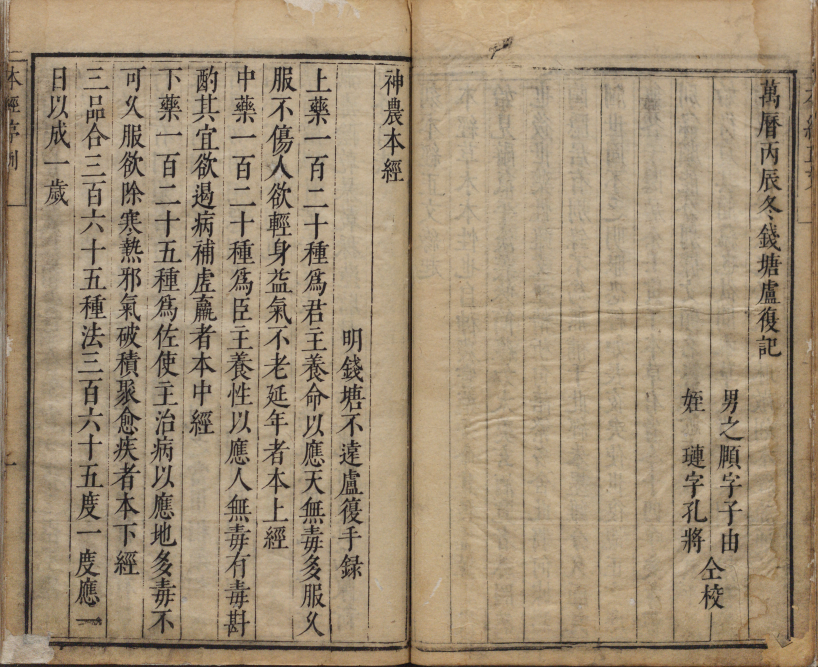 萬曆丙辰冬錢塘盧復記
男之頤字子由
姪 璉字孔將
仝校
神農本經
明錢塘不遠盧復手録
上藥一百二十種爲君主養命以應天無毒多服久
服不傷人欲輕身益氣不老延年者本上經
中藥一百二十種爲臣主養性以應人無毒有毒斟
酌其宜欲遏病補虛羸者本中經
下藥一百二十五種爲佐使主治病以應地多毒不
可久服欲除寒熱邪氣破積聚愈疾者本下經
三品合三百六十五種法三百六十五度一度應一
日以成一歲
本經
一